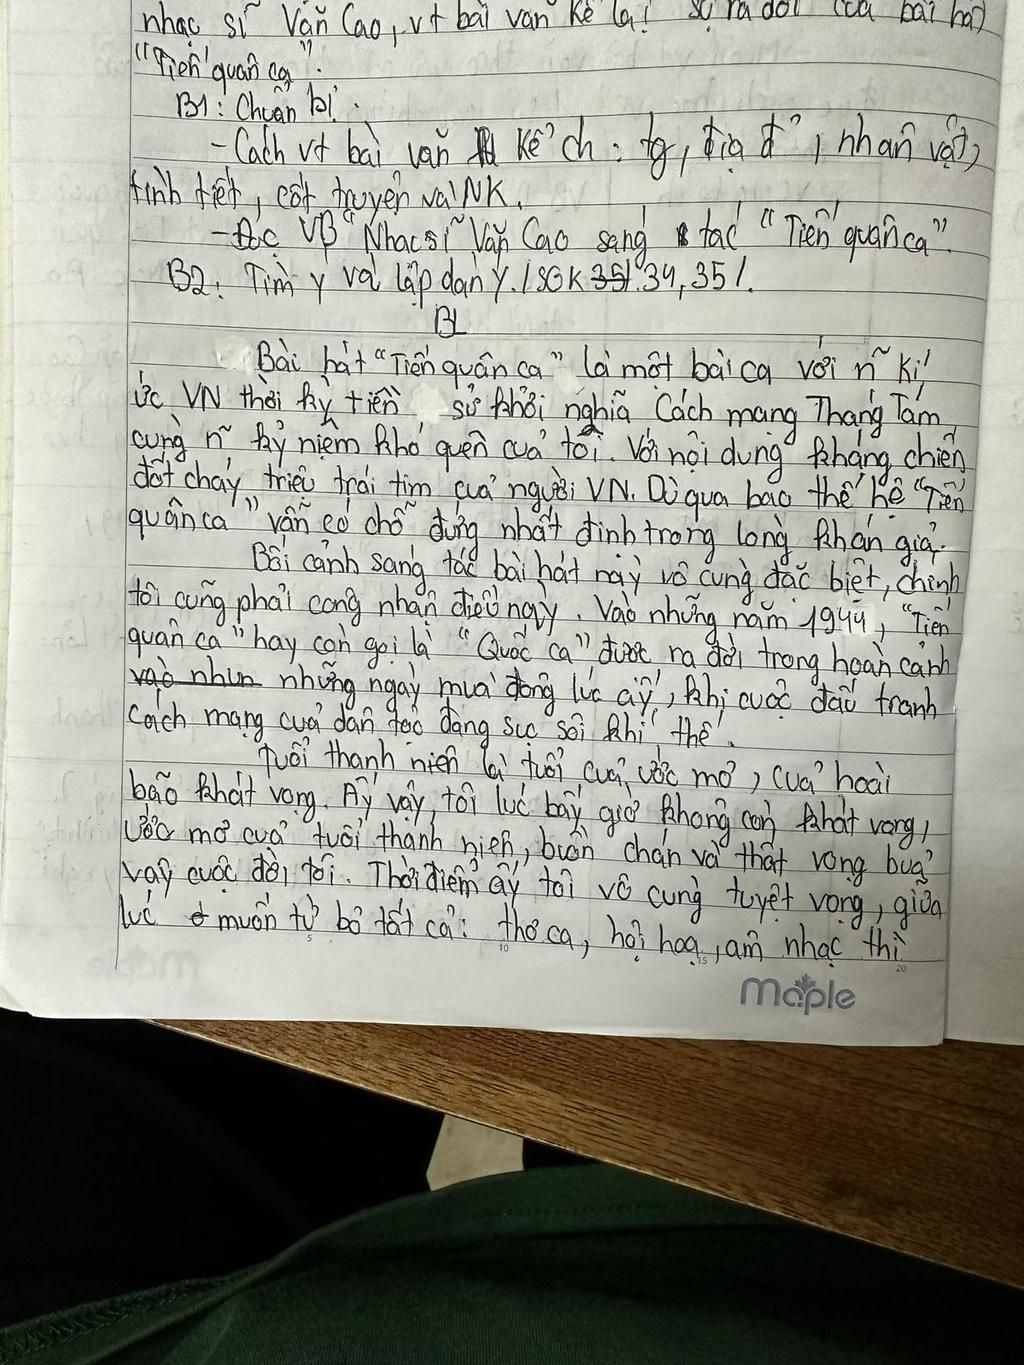 nhạc sĩ Văn Cao, vt bài văn kể lại sự ra đời của bài hát
"Tiến quân ca".
B1: Chuẩn bị.
- Cách vt bài văn kể ch: tg, địa đ', nhân vật,
tình tiết, cốt truyện và NK.
- Đọc VB "Nhạc sĩ Văn Cao sáng tác "Tiến quân ca".
B2: Tìm ý và lập dàn ý. /SGK 35/ 34, 35/.
BL
Bài hát "Tiến quân ca" là một bài ca với n~ kí
ức VN thời kỳ tiền sử khởi nghĩa Cách mạng Tháng Tám,
cùng n~ kỷ niệm khó quên của tôi. Với nội dung kháng chiến
đốt cháy triệu trái tim của người VN. Dù qua bao thế hệ "Tiến
quân ca" vẫn có chỗ đứng nhất định trong lòng khán giả.
Bối cảnh sáng tác bài hát này vô cùng đặc biệt, chính
tôi cũng phải công nhận điều này. Vào những năm 1944, "Tiến
quân ca" hay còn gọi là "Quốc ca" được ra đời trong hoàn cảnh
vào nhưn những ngày mùa đông lúc ấy, khi cuộc đấu tranh
cách mạng của dân tộc đang sục sôi khí thế.
Tuổi thanh niên là tuổi của ước mơ, của hoài
bão khát vọng. Ấy vậy, tôi lúc bấy giờ không còn khát vọng,
ước mơ của tuổi thanh niên, buồn chán và thất vọng bủa
vây cuộc đời tôi. Thời điểm ấy tôi vô cùng tuyệt vọng, giữa
lúc muốn từ bỏ tất cả: thơ ca, hội hoạ, âm nhạc thì
5 10 15 20
maple